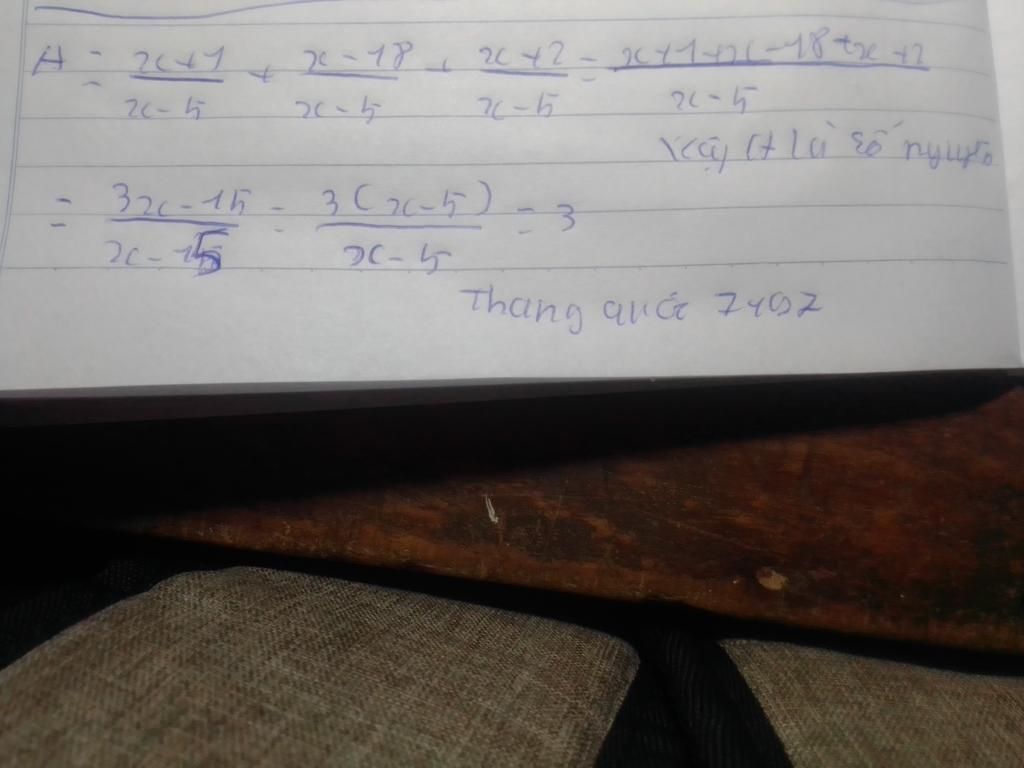 A = x+1/x-5 + x-18/x-5 + x+2/x-5 = x+1+x-18+x+2/x-5
Vậy A là số nguyên
= 3x-15/x-5 = 3(x-5)/x-5 = 3
Thang quốc